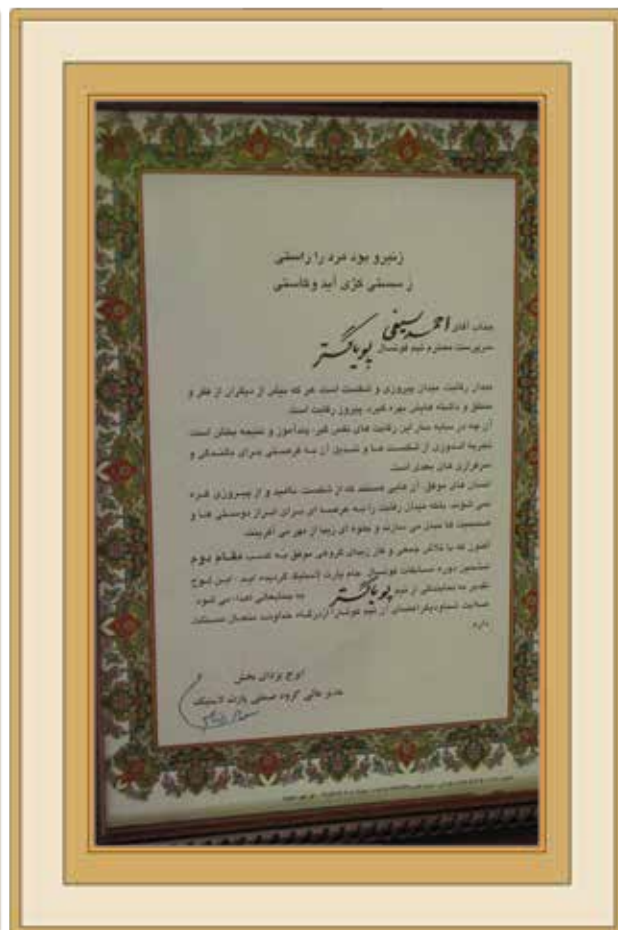 زنیرو بود مرد را راستی
ز سستی کژی آید و کاستی
جناب آقای احمد سیفی
سرپرست محترم تیم فوتسال پویاگستر
میدان رقابت، میدان پیروزی و شکست است. هر که بیش از دیگران از فکر و
منطق و داشته هایش بهره گیرد، پیروز رقابت است.
آن چه در سایه سار این رقابت های نفس گیر، پندآموز و نتیجه بخش است،
تجربه اندوزی از شکست ها و تبدیل آن به فرصتی برای بالندگی و
سرفرازی های بعدی است.
انسان های موفق، آن هایی هستند که از شکست، ناامید و از پیروزی غره
نمی شوند، بلکه میدان رقابت را به عرصه ای برای ابراز دوستی ها و
صمیمیت ها مبدل می سازند و جلوه ای زیبا از مهر می آفرینند.
اکنون که با تلاش جمعی و کار زیبای گروهی موفق به کسب مقام دوم
ششمین دوره مسابقات فوتسال جام پارت لاستیک گردیده اید، این لوح
تقدیر به نمایندگی از تیم پویاگستر به جنابعالی اهدا می شود.
سلامت شما و دیگر اعضای آن تیم را از درگاه خداوند متعال مسئلت
دارم.
ایرج یزدان بخش
مدیر عالی گروه صنعتی پارت لاستیک